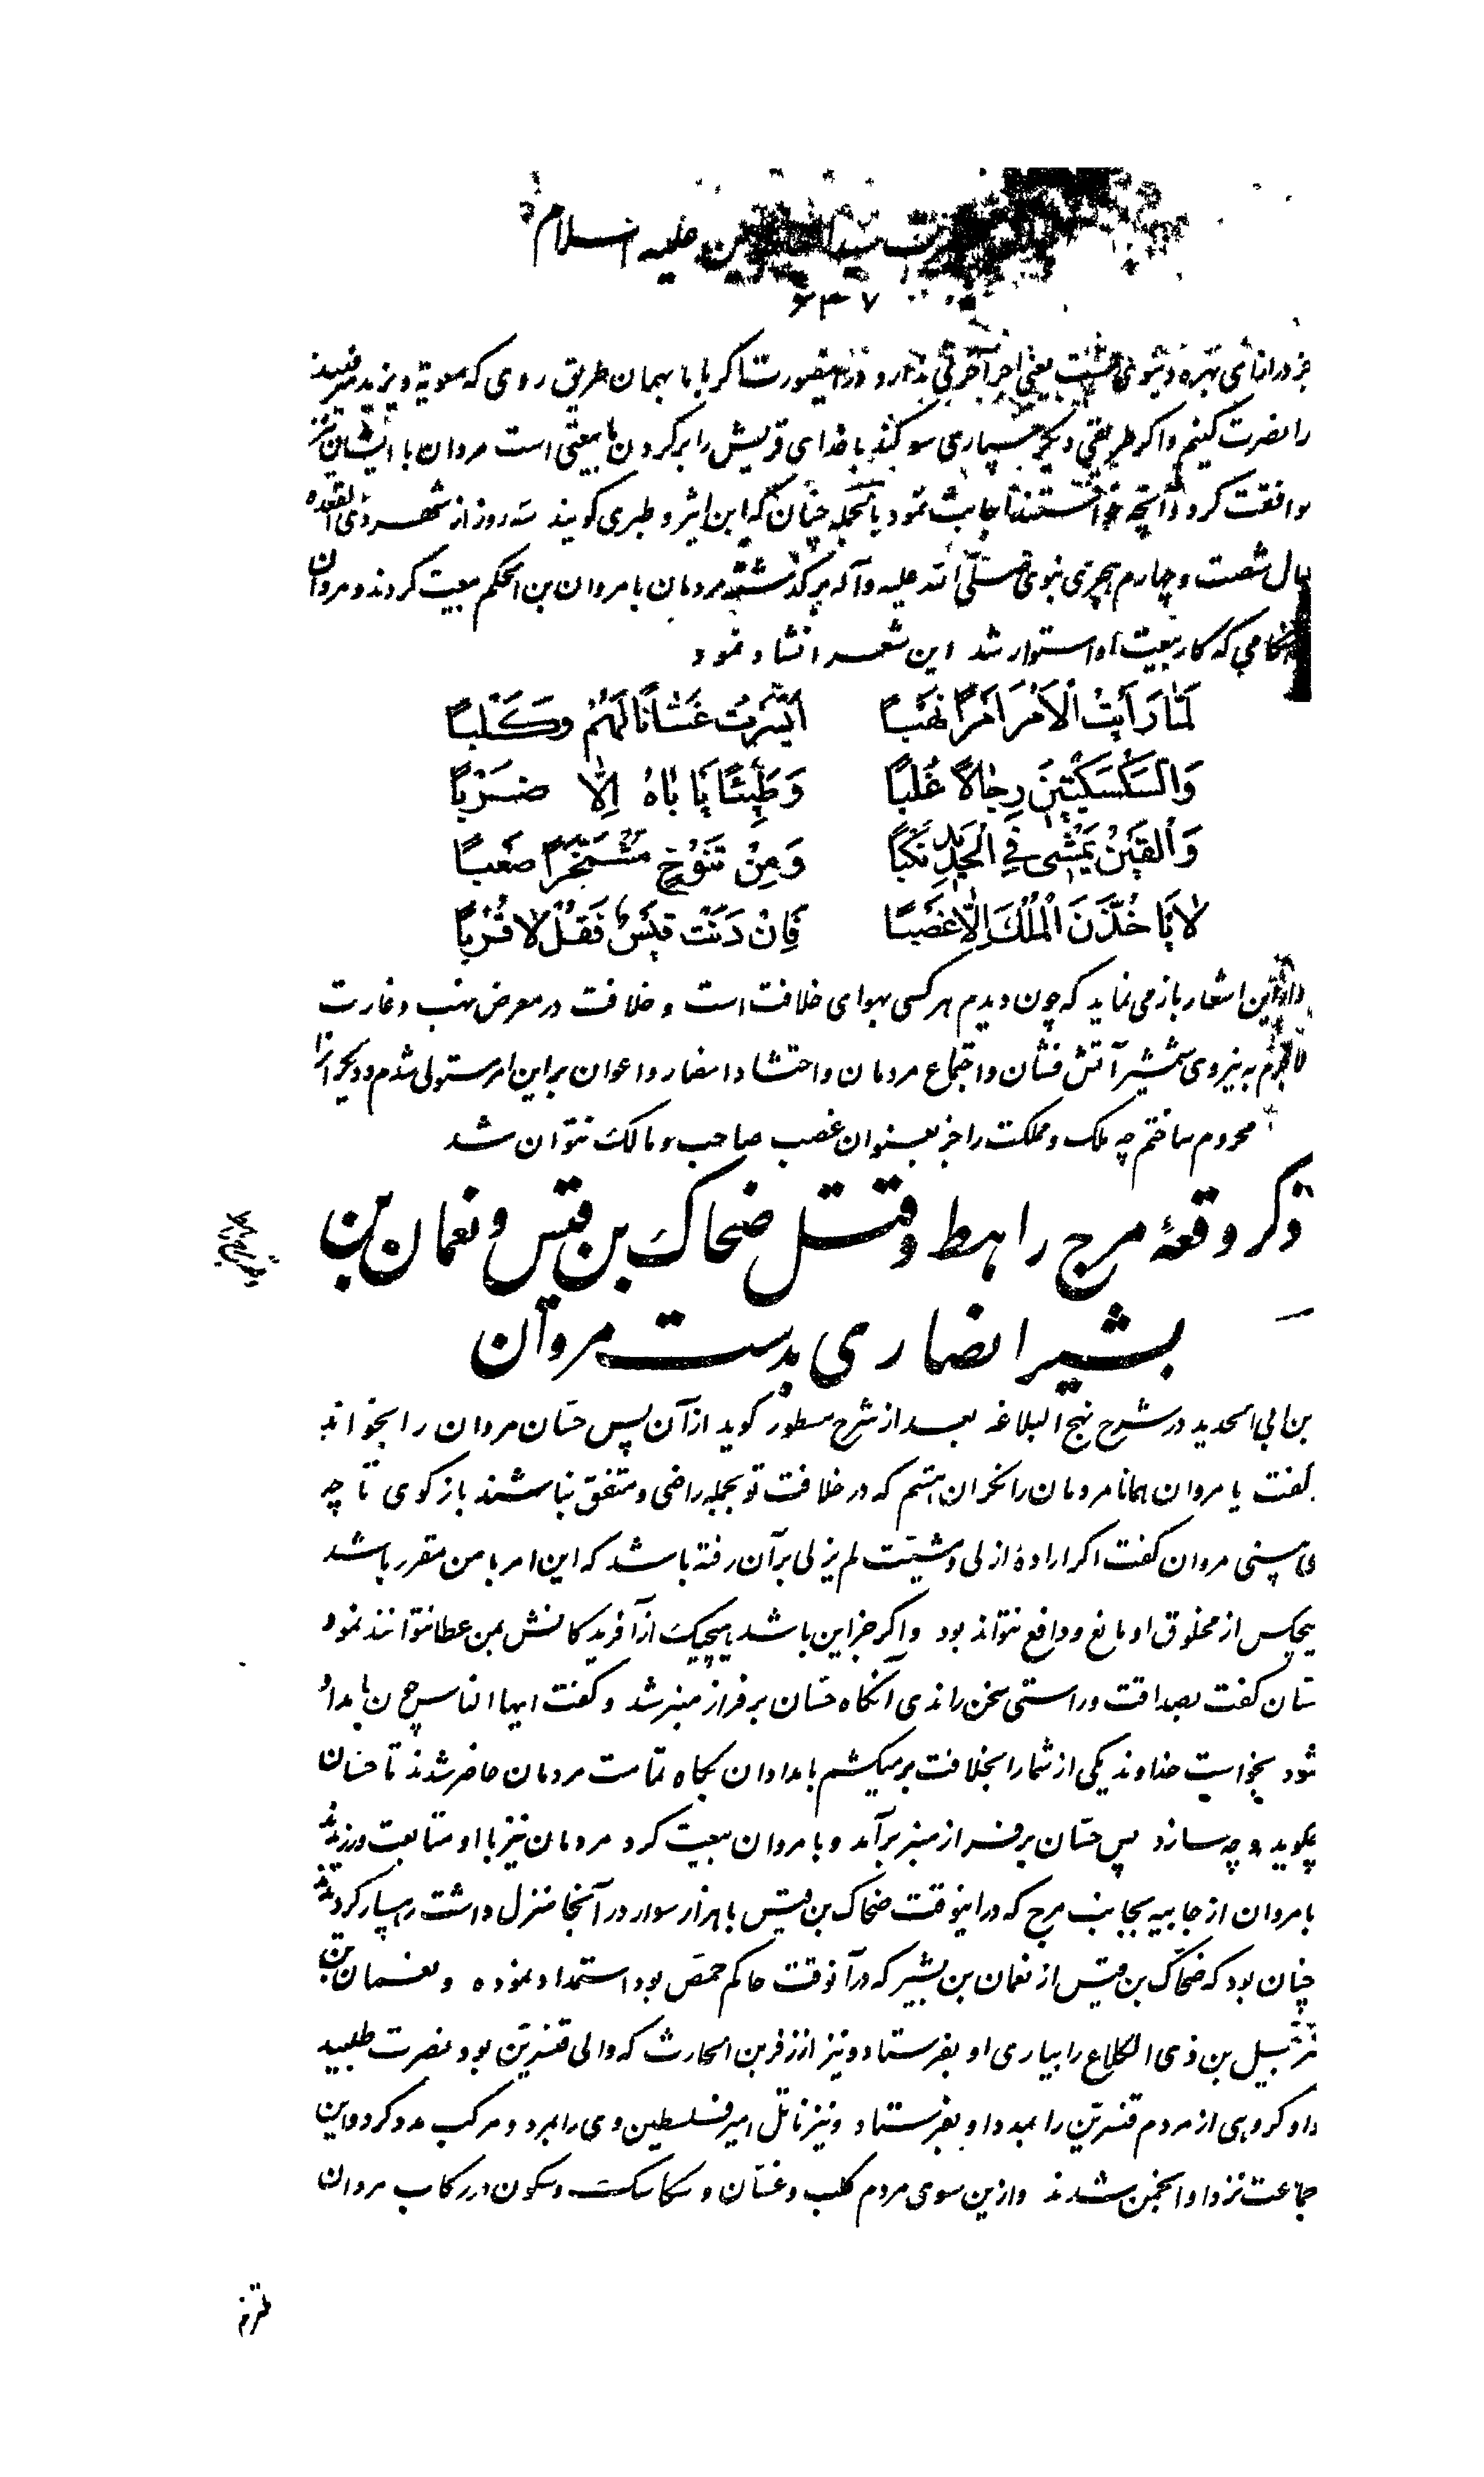 علیه السلام
۶۳۷
را نصرت کنیم واکر طریقی دیکر بسپاری سوکند باخدای قریش را بر کردن ما بیعتی است مروان با ایشان نیز
موافقت کرد و آنچه خواستند اجابت نمود بالجمله چنان که ابن اثیر و طبری کویند سه روز از شهر ذی القعده
سال شصت و چهارم هجری نبوی صلی الله علیه وآله بر کذشته مردمان با مروان بن الحکم بیعت کردند و مروان
هنکامی که کار بیعت او استوار شد این شعر انشاد نمود
لَمّا رَأَیْتُ الْاَمْرَ اَمْرًا نَهْبًا اَیْسَرْتُ غَسّانًا لَهُمْ وَکَلْبًا
وَالسَّکْسَکِیّینَ رِجالاً غُلْبًا وَطَیِّئًا یَأْباهُ اِلّا ضَرْبًا
وَالْقَیْنُ یَمْشی فِی الْحَدیدِ نَکْبًا وَمِنْ تَنُوْخَ مُشْمَخِرًّا صَعْبًا
لایَأْخُذُنَ الْمُلْكَ اِلّا غَصْبًا فَاِنْ دَنَتْ قَیْسٌ فَقُلْ لا قُرْبًا
این اشعار باز می نماید که چون دیدم هر کسی بهوای خلافت است و خلافت در معرض نهب و غارت
لاجرم به نیروی شمشیر آتش فشان واجتماع مردمان واحتشاد انصار واعوان براین امر مستولی شدم ودیکرانرا
محروم ساختم چه ملک و مملکت را جز بعنوان غصب صاحب و مالک نتوان شد
ذکر وقعهٔ مرج راهط وقتل ضحاک بن قیس و نعمان بن
بشیر انصاری بدست مروان
بن ابی الحدید در شرح نهج البلاغه بعد از شرح مسطور کوید از آن پس حسّان مروان را بخواند
کفت یا مروان همانا مردمان را نکران هستم که در خلافت تو بجمله راضی و متفق نباشند باز کوی تا چه
می بینی مروان کفت اکر ارادهٔ ازلی و مشیّت لم یزلی بر آن رفته باشد که این امر بامن مقرر باشد
یچکس از مخلوق او مانع و دافع نتواند بود واکر جز این باشد هیچیک از آفریدکانش بمن عطا نتوانند نمود
سّان کفت بصداقت وراستی سخن راندی آنکاه حسّان بر فراز منبر شد و کفت ایها الناس چون بامداد
شود بخواست خداوند یکی از شما را بخلافت بر میکشم بامدادان پکاه تمامت مردمان حاضر شدند تا حسان
چکوید و چه سازد پس حسّان بر فراز منبر برآمد و با مروان بیعت کرد مردمان نیز با او متابعت ورزیدند
با مروان از جابیه بجانب مرج که در اینوقت ضحاک بن قیس با هزار سوار در آنجا منزل داشت رهسپار کردیدند
چنان بود که ضحّاک بن قیس از نعمان بن بشیر که در آنوقت حاکم حمص بود استمداد نموده و نعمان بن
شرحبیل بن ذی الکلاع را بیاری او بفرستاد و نیز از زفر بن الحارث که والی قنسرین بود نصرت طلبید
داو کروهی از مردم قنسرین را بمدد او بفرستاد و نیز ناتل امیر فلسطین وی را بمرد و مرکب مدد کرد و این
جماعت نزد او انجمن شدند وازین سوی مردم کلب و غسّان و سکاسک و سکون در رکاب مروان